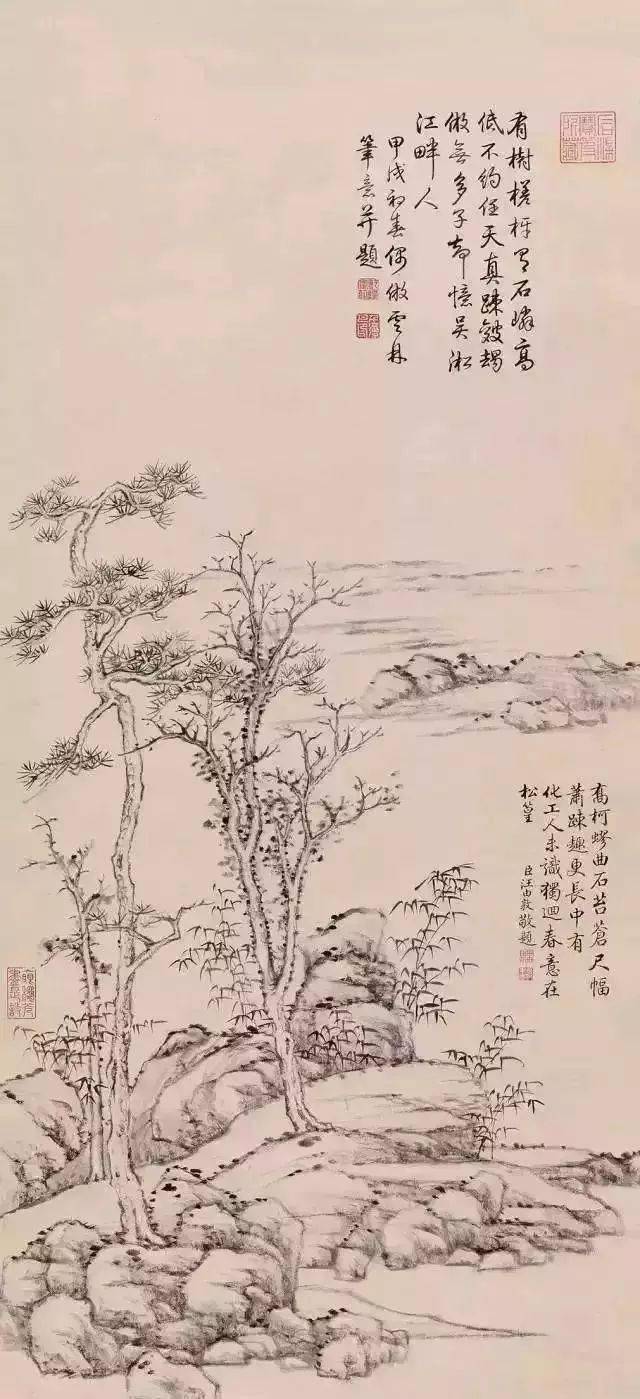 有樹槎枒又石嶙高
低不約任天真踈皴
倣無多子却憶吳淞
江畔人
甲戌初春偶倣雲林
筆意并題
喬柯蟉曲石苔蒼尺幅
蕭踈趣更長中有
化工人未識獨迴春意在
松篁
臣汪由敦敬題